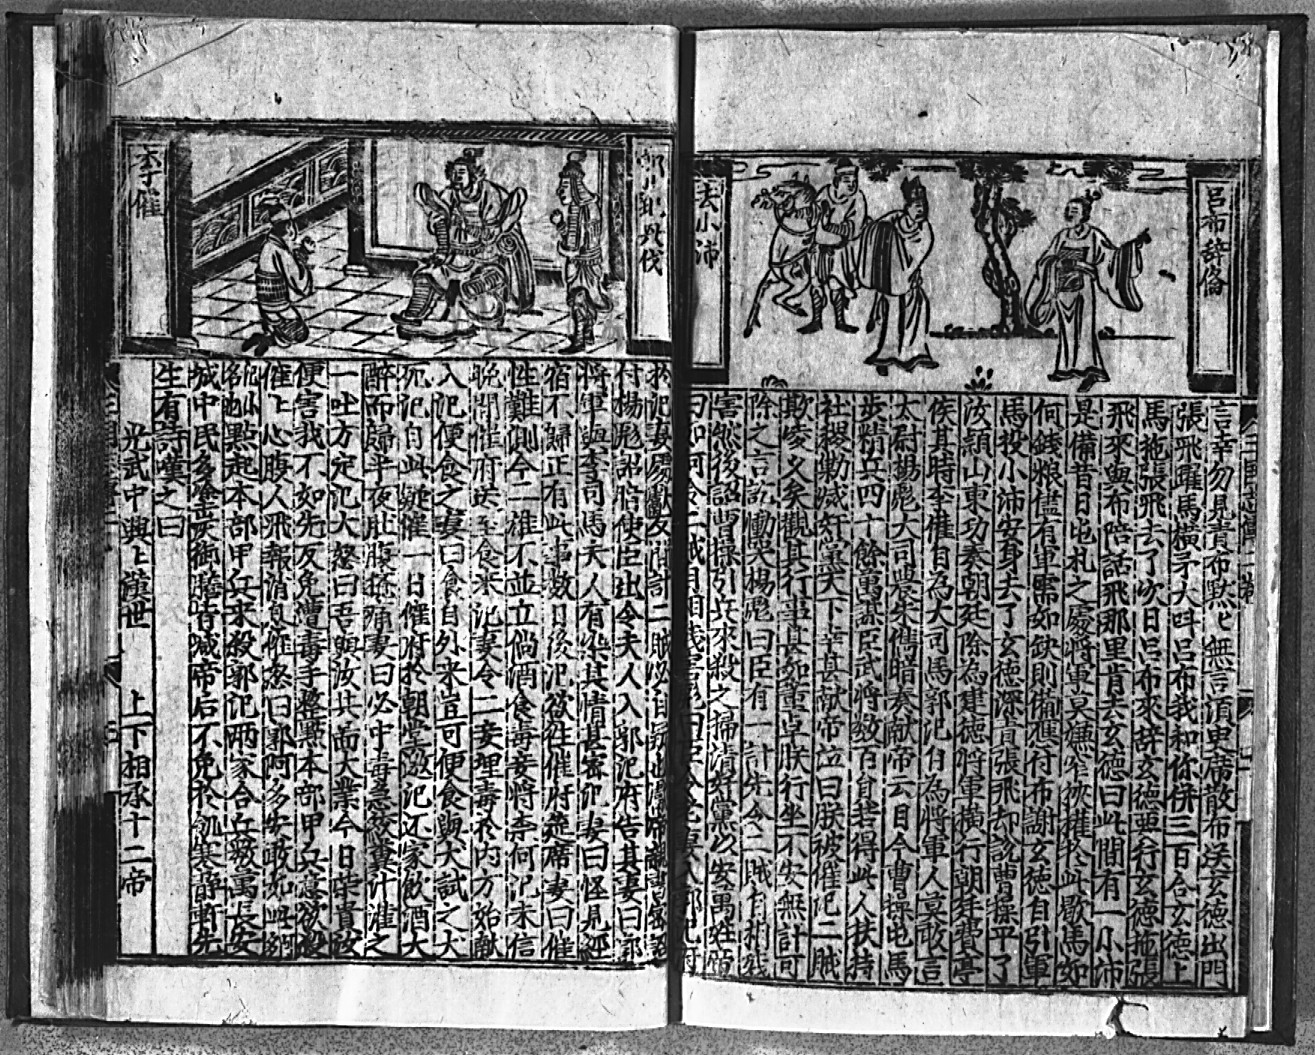 呂布辞備
去小沛
言幸勿見責布黙〻無言湏臾席散布送玄德出門
張飛躍馬橫矛大呌呂布我和你併三百合玄德上
馬拖張飛去了次日呂布來辞玄德玄德拖張
飛來與布陪話飛那里肯去玄德曰此間有一小沛
是備昔日屯札之處將軍莫嫌窄狹權於此歇馬如
何錢粮儘有軍需如缺則備應付布謝玄德自引軍
馬投小沛安身去了玄德深責張飛却說曹操平了
汝頴山東功奏朝廷除為建德將軍橫行朝廷費亭
侯其時李催自為大司馬郭汜自為將軍人莫敢言
太尉楊彪大司農朱儁暗奏献帝云目今曹操屯馬
步精兵四十餘萬謀臣武將数百員若得此人扶持
社稷勦滅奸黨天下幸甚献帝泣曰朕被催汜二賊
欺凌久矣觀其行事甚如董卓朕行坐不安無計可
除之言訖慟哭楊彪曰臣有一計先令二賊自相殘
害然後詔曹操引兵來殺之掃清奸黨以安萬姓
於汜妻
付楊彪詔暗使臣出令夫人入郭汜府告其妻曰郭
將軍與李司馬夫人有染其情甚密汜妻曰怪見經
宿不歸正有此事数日後汜欲往催府筵席妻曰催
性難測况今二雄不並立倘酒食毒妾將柰何汜未信
晚間催府送至食來汜妻令二妾埋毒於内方始献
入汜便食之妻曰食自外来豈可便食與犬試之犬
死汜自此疑催一日催府於朝堂邀汜还家飲酒大
醉而歸半夜肚腹疼痛妻曰必中毒急絞糞汁灌之
一吐方定汜大怒曰吾與汝共圖大業今日荣貴汝
便害我不如先反免遭毒手整點本部甲兵意欲殺
催〻心腹人飛報消息催怒曰郭阿多安敢如此
點起本部甲兵来殺郭汜两家合兵数萬長安
城中民多塗
生有詩嘆之曰
光武中興〻漢世　上下相承十二帝
郭汜
李催